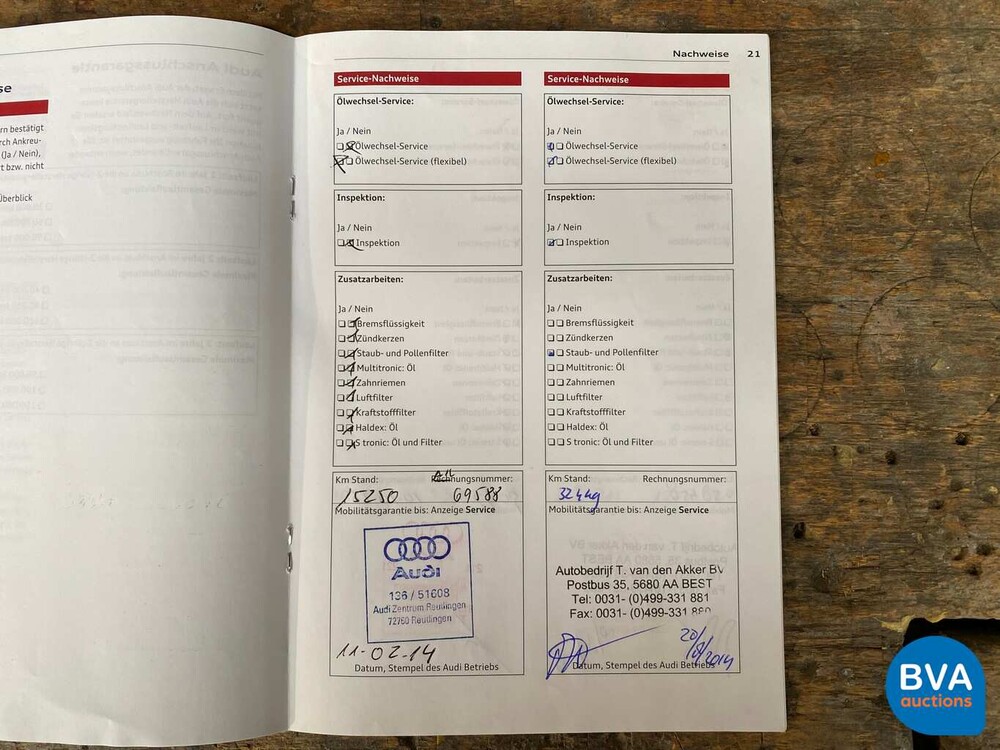 se
rn bestätigt
rch Ankreu-
(Ja / Nein),
rt bzw. nicht
Überblick
Nachweise 21
Service-Nachweise
Ölwechsel-Service:
Ja / Nein
Ölwechsel-Service
Ölwechsel-Service (flexibel)
Inspektion:
Ja / Nein
Inspektion
Zusatzarbeiten:
Ja / Nein
Bremsflüssigkeit
Zündkerzen
Staub- und Pollenfilter
Multitronic: Öl
Zahnriemen
Luftfilter
Kraftstofffilter
Haldex: Öl
S tronic: Öl und Filter
Km Stand: Rechnungsnummer:
15250 69588
Mobilitätsgarantie bis: Anzeige Service
Audi
136 / 51608
Audi Zentrum Reutlingen
72760 Reutlingen
11-02-14
Datum, Stempel des Audi Betriebs
Service-Nachweise
Ölwechsel-Service:
Ja / Nein
Ölwechsel-Service
Ölwechsel-Service (flexibel)
Inspektion:
Ja / Nein
Inspektion
Zusatzarbeiten:
Ja / Nein
Bremsflüssigkeit
Zündkerzen
Staub- und Pollenfilter
Multitronic: Öl
Zahnriemen
Luftfilter
Kraftstofffilter
Haldex: Öl
S tronic: Öl und Filter
Km Stand: Rechnungsnummer:
Mobilitätsgarantie bis: Anzeige Service
Autobedrijf T. van den Akker BV
Postbus 35, 5680 AA BEST
Tel: 0031- (0)499-331 881
Fax: 0031- (0)499-331 880
Datum, Stempel des Audi Betriebs
BVA
auctions